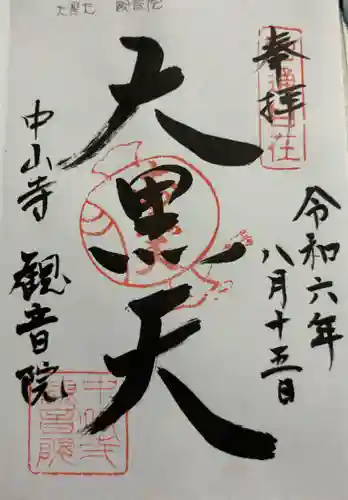 大黒天 観音院
奉拝
令和六年
八月十五日
大黒天
中山寺
観音院